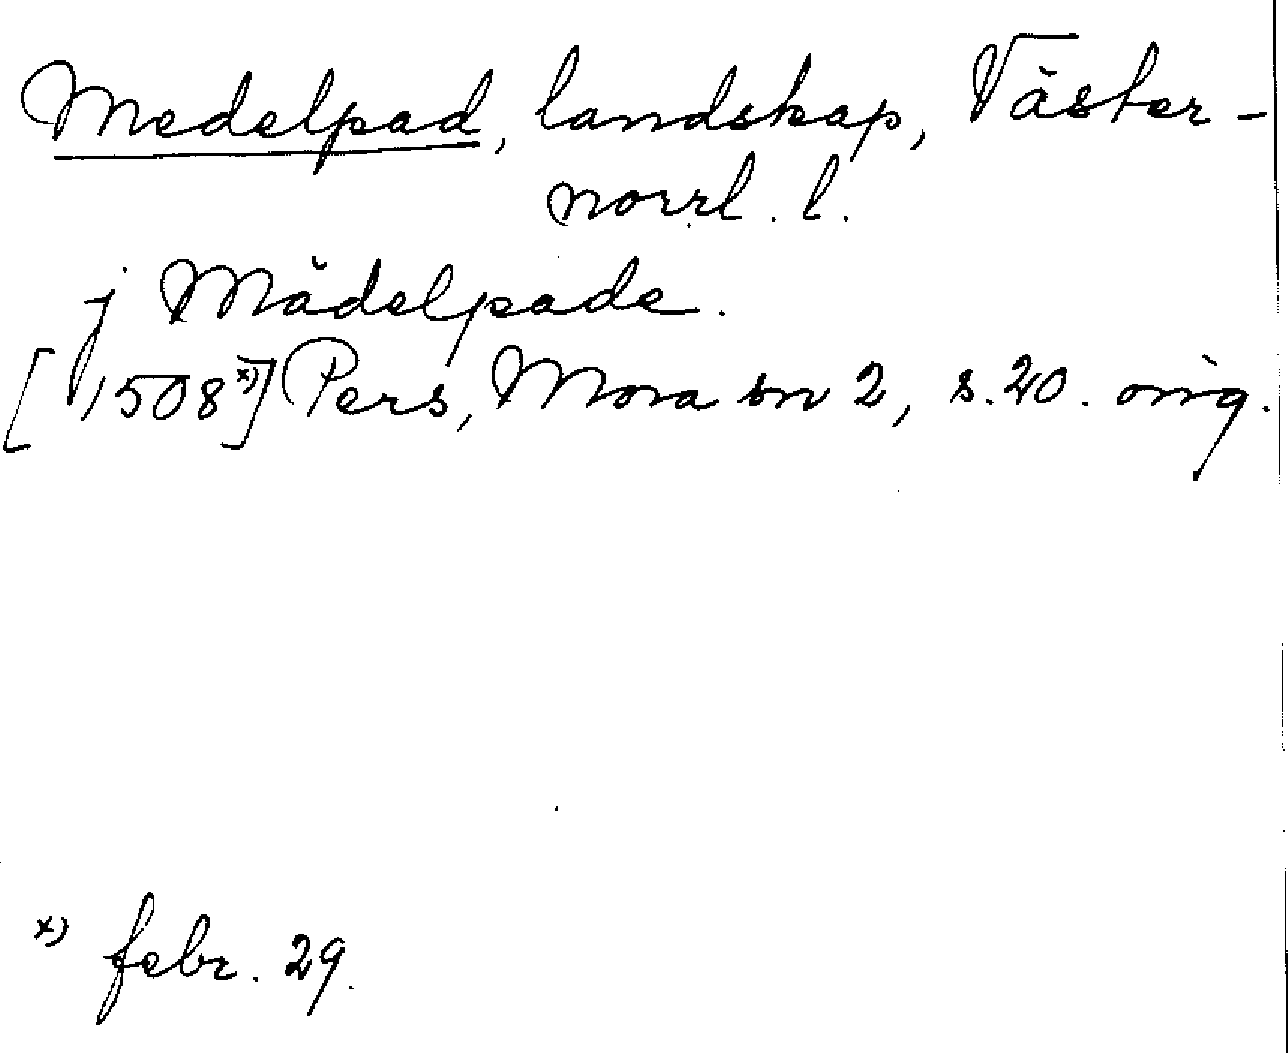 Medelpad, landskap, Väster-
norrl. l.
j Mädelpade.
[1508x)] Pers, Mora sn 2, s. 20. orig.
x) febr. 29.